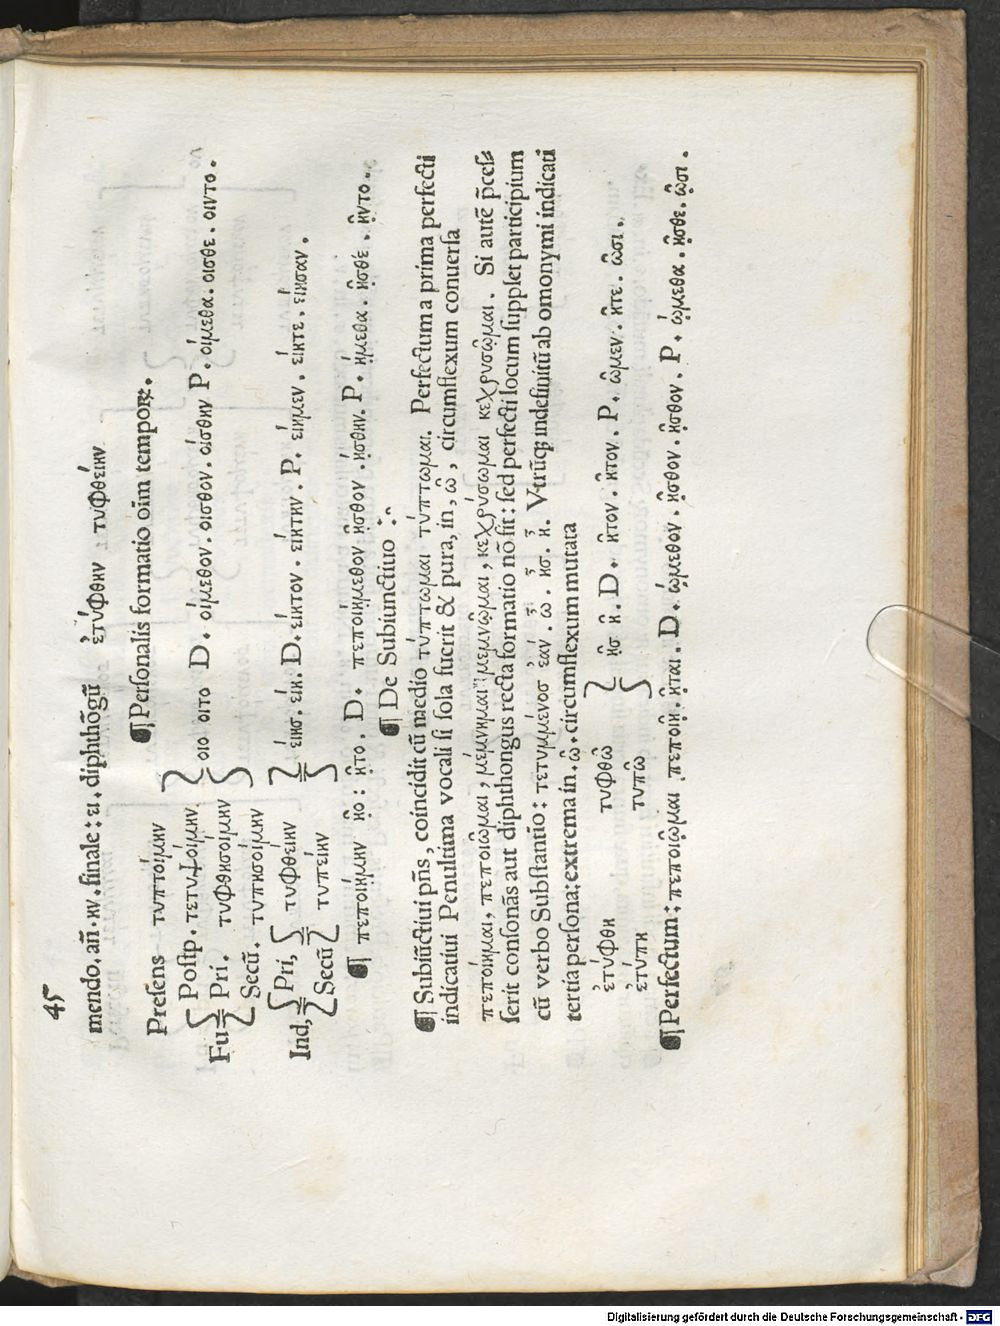 45
mendo. añ. ην. finale: ει. diphthõgũ ἐτύφθην τυφθείην
¶ Personalis formatio oĩm temporꝝ.
Presens τυπτοίμην
Fu Postp. τετυψοίμην οιο οιτο D. οίμεθον. οισθον. οίσθην P. οίμεθα. οισθε. οιντο.
Pri. τυφθησοίμην
Secũ. τυπησοίμην
Ind, Pri, τυφθείην είησ. είη. D. είητον. είήτην. P. είημεν. είητε. είησαν.
Secũ τυπείην
¶ πεποιῄμην ῇο: ῇτο. D. πεποιῄμεθον ῇσθον. ῄσθην. P. ῄμεθα. ῇσθε. ῇντο.
¶ De Subiunctiuo
¶ Subiũctiui pñs, coincidit cũ medio τύπτωμαι τύπτωμαι. Perfectum a prima perfecti
indicatiui Penultima vocali si sola fuerit & pura, in, ῶ, circumflexum conuersa
πεποίημαι, πεποιῶμαι, μέμνημαι μεμνῶμαι, κεχρύσωμαι κεχρυσῶμαι. Si autẽ p̃ces
serit consonãs aut diphthongus recta formatio nõ fit: sed perfecti locum supplet participium
cũ verbo Substantio: τετυμμένοσ εαν. ω. ησ. η. V-trũqꝫ indefinitũ ab omonymi indicati
tertia persona: extrema in. ῶ. circumflexum mutata
ἐτύφθη τυφθῶ ῇσ ῇ. D. ῆτον. ῆτον. P. ῶμεν. ῆτε. ῶσι.
ἐτύπη τυπῶ
¶ Perfectum: πεποιῶμαι πεποιῇ. ῆται. D. ώμεθον. ῆσθον. ῆσθον. P. ώμεθα. ῆσθε. ῶσι.
Digitalisierung gefördert durch die Deutsche Forschungsgemeinschaft - DFG